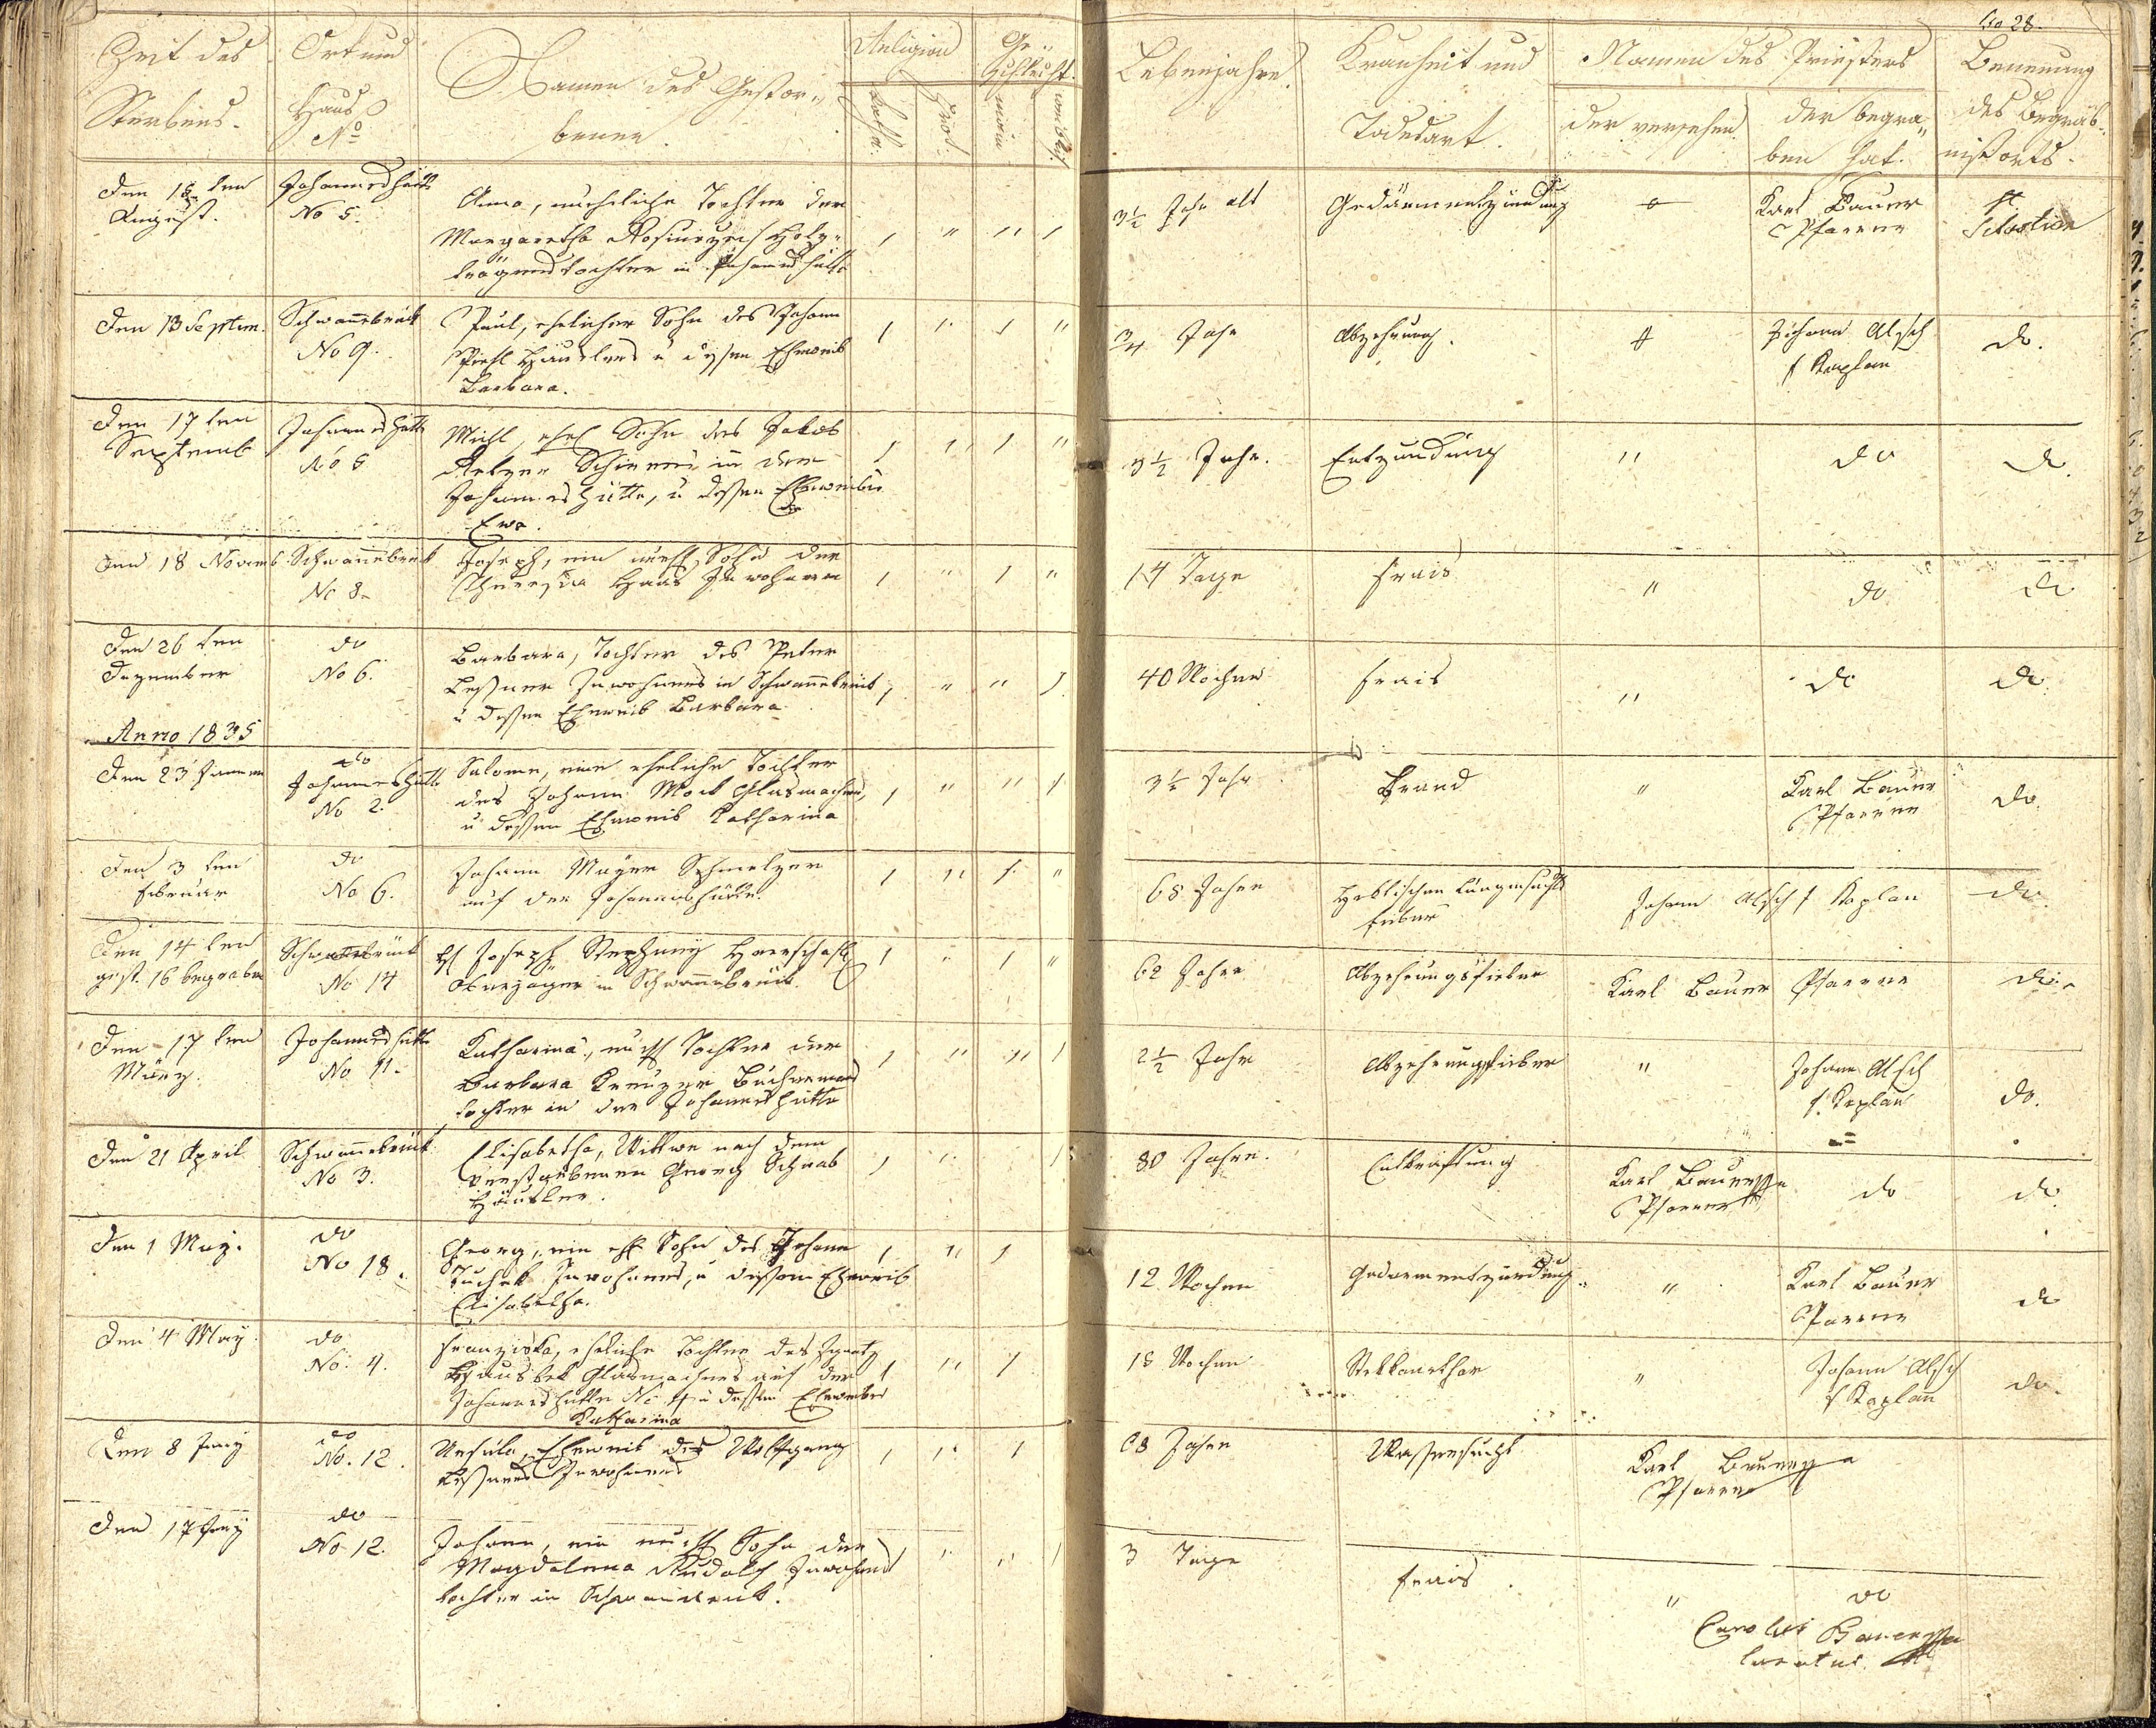 No 28.
Zeit des
Sterbens.
Ort und
Haus
No
Namen des Gestor-
benen.
Religion
Kathol.
Prot.
Ge-
schlecht.
män
weibl.
Lebensjahre
Krankheit und
Todesart.
Namen des Priesters
der versehen
der begra-
ben hat.
Benennung
des Begräb-
nißorts.
Den 18 ten
August.
Johanneshütte
No 5.
Anna, uneheliche Tochter der
Margaretha
tochter in Johanneshütte
3 1/2 Jahr alt
Gedärmentzündung
Karl Bauer
Pfarrer
St
Sebastian
Den 13 Septem.
Schwannebrück
No 9.
Paul, ehelicher Sohn des Johann
Häuslers u dessen Eheweib
Barbara.
3/4 Jahr
Abzehrung.
Johann Alsch
Kaplan
do.
Den 17 ten
Septemb
Johanneshütte
No 5
Michl, ehel Sohn des Jakob
in der
Johanneshütte, u dessen Eheweibe
Eva.
3 1/2 Jahr.
Entzündung
"
do
do.
Den 18 Novemb
Schwannebrück
No 8.
Joseph, ein unehl Sohn der
Theresia Haas Inwohnerin
14 Tage
Frais
"
do
do
Den 26 ten
Dezember
do
No 6.
Barbara, Tochter des Peter
Leßner Inwohners in Schwannebrück
u dessen Eheweib Barbara
40 Wochen
Frais
"
do
do
Anno 1835
Den 23 Jänner
do
Johanneshütte
No 2.
Salome, eine eheliche Tochter
des Johann Glasmachers,
u dessen Eheweib Katharina
3 1/2 Jahr
Brand
"
Karl Bauer
Pfarrer
do.
Den 3 ten
Februar
do
No 6.
Johann Mayer Schmelzer
auf der Johanneshütte.
68 Jahre
Lungensucht
Fieber
Johann Alsch Kaplan
do.
Den 14 ten
gest. 16 begraben
Schwannebrück
No 14
H Joseph Herrschaftl
Oberjäger in Schwannebrück.
62 Jahre
Abzehrungsfieber
Karl Bauer Pfarrer
do.
Den 17 ten
März.
Johanneshütte
No 11.
Katharina, unehl Tochter der
Barbara Kreuzer
tochter in der Johanneshütte
2 1/2 Jahr
Abzehrungsfieber
"
Johann Alsch
Kaplan
do.
Den 21 April
Schwannebrück
No 3.
Elisabetha, Wittwe nach dem
verstorbenen Georg Schwab
Häusler.
80 Jahre.
Entkräftung
Karl Bauer
Pfarrer
do
do
Den 1 May.
do
No 18.
Georg, ein ehl Sohn des Johann
Inwohners, u dessen Eheweib
Elisabetha.
12 Wochen
Gedärmentzündung
"
Karl Bauer
Pfarrer
do
Den 4 May.
do
No. 4.
Franziska, eheliche Tochter des Ignatz
Glasmachers auf der
Johanneshütte No 4 u dessen Eheweibes
Katharina
18 Wochen
Stekkathar
"
Johann Alsch
Kaplan
do.
Den 8 Juny
do
No. 12.
Ursula, Eheweib des Wolfgang
Leßners Inwohners
68 Jahre
Wassersucht
Karl Bauer
Pfarrer
Den 17 Juny
do
No 12.
Johann, ein unehl Sohn der
Magdalena Rudolf Inwohners
tochter in Schwannebrück.
3 Tage
Frais.
"
do
Carolus Bauer
Curatus